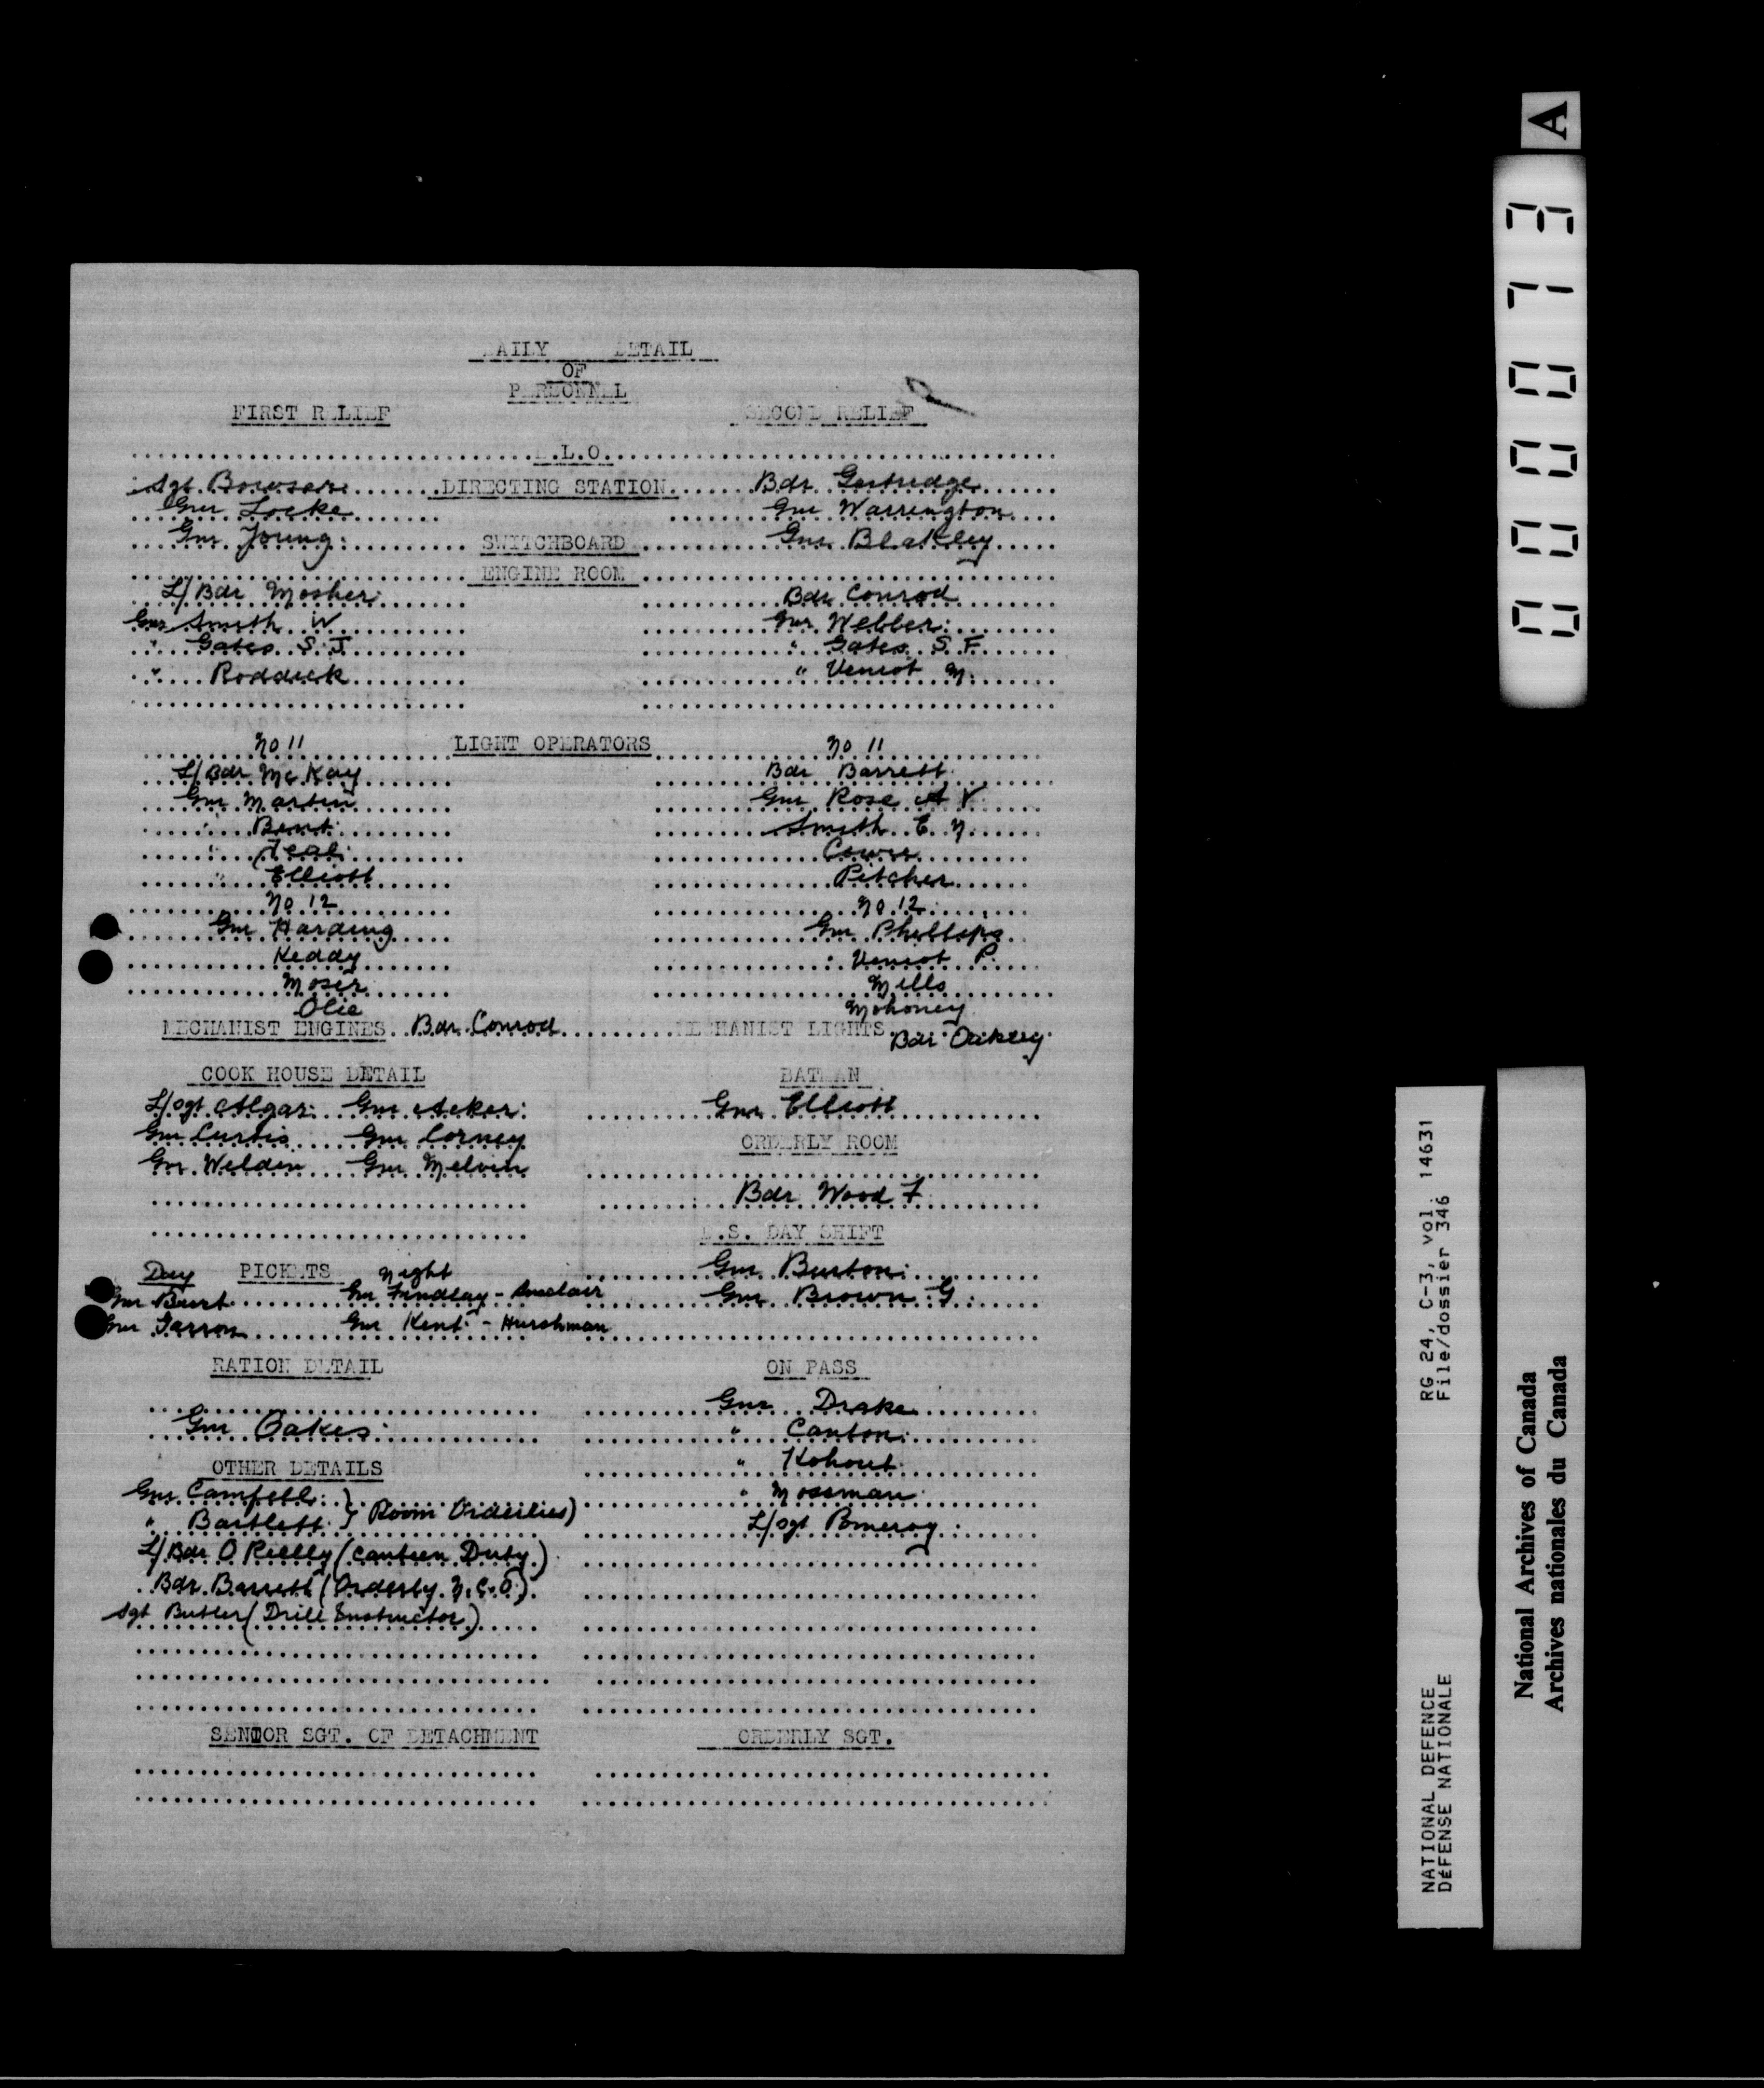 DAILY DETAIL
OF
PERSONNEL
FIRST RELIEF SECOND RELIEF
.L.O.
Sgt. Bowser DIRECTING STATION Bdr. Gertridge
Gnr Locke Gnr Warrington
Gnr Young SWITCHBOARD Gnr Blakley
ENGINE ROOM
L/Bdr Mosher Bdr Conrod
Gnr Smith W Gnr Webber
" Gates S. J. " Gates S F
" Roddick " Veniot N.
No 11 LIGHT OPERATORS No 11
L/Bdr McKay Bdr Barrett
Gnr Martin Gnr Rose A V
" Bent Smith E. N.
" Teal
" Elliott Pitcher
No 12 No 12
Gnr Harding Gnr Phillips
Keddy " Veniot P.
Moser Mills
Olie Mohoney
MECHANIST ENGINES Bdr. Conrod MECHANIST LIGHTS Bdr Oakley
COOK HOUSE DETAIL BATMAN
L/Sgt. Algar Gnr Acker Gnr Elliott
Gnr Curtis Gnr Corney ORDERLY ROOM
Gnr. Welden Gnr Melvin
Bdr Wood F
D.S. DAY SHIFT
Day PICKETS Night Gnr Burton
Gnr Burt Gnr Findlay - Sinclair Gnr Brown G
Gnr Garron Gnr Kent - Hurshman
RATION DETAIL ON PASS
Gnr Drake
Gnr Oakes " Canton
OTHER DETAILS " Kohout
Gnr Campbell } " Mossman
" Bartlett } Room Orderlies) L/Sgt Pomeroy
L/Bdr O Rielly (Canteen Duty)
Bdr. Barrett (Orderly N.C.O.)
Sgt Butler (Drill Instructor)
SENIOR SGT. OF DETACHMENT ORDERLY SGT.
A
000073
RG 24, C-3, vol. 14631
File/dossier 346
NATIONAL DEFENCE
DÉFENSE NATIONALE
National Archives of Canada
Archives nationales du Canada